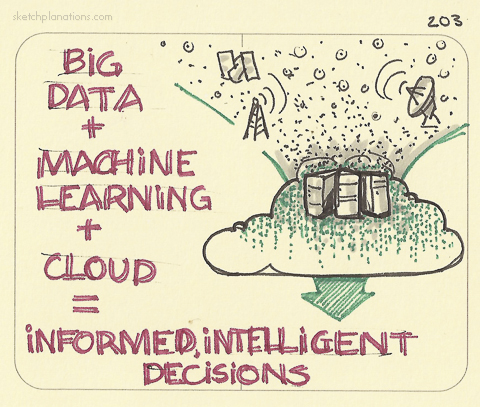 sketchplanations.com
203
BiG
DATA
+
MACHiNE
LEARNiNG
+
CLOUD
=
iNFORMED, iNTELLiGENT
DECiSiONS